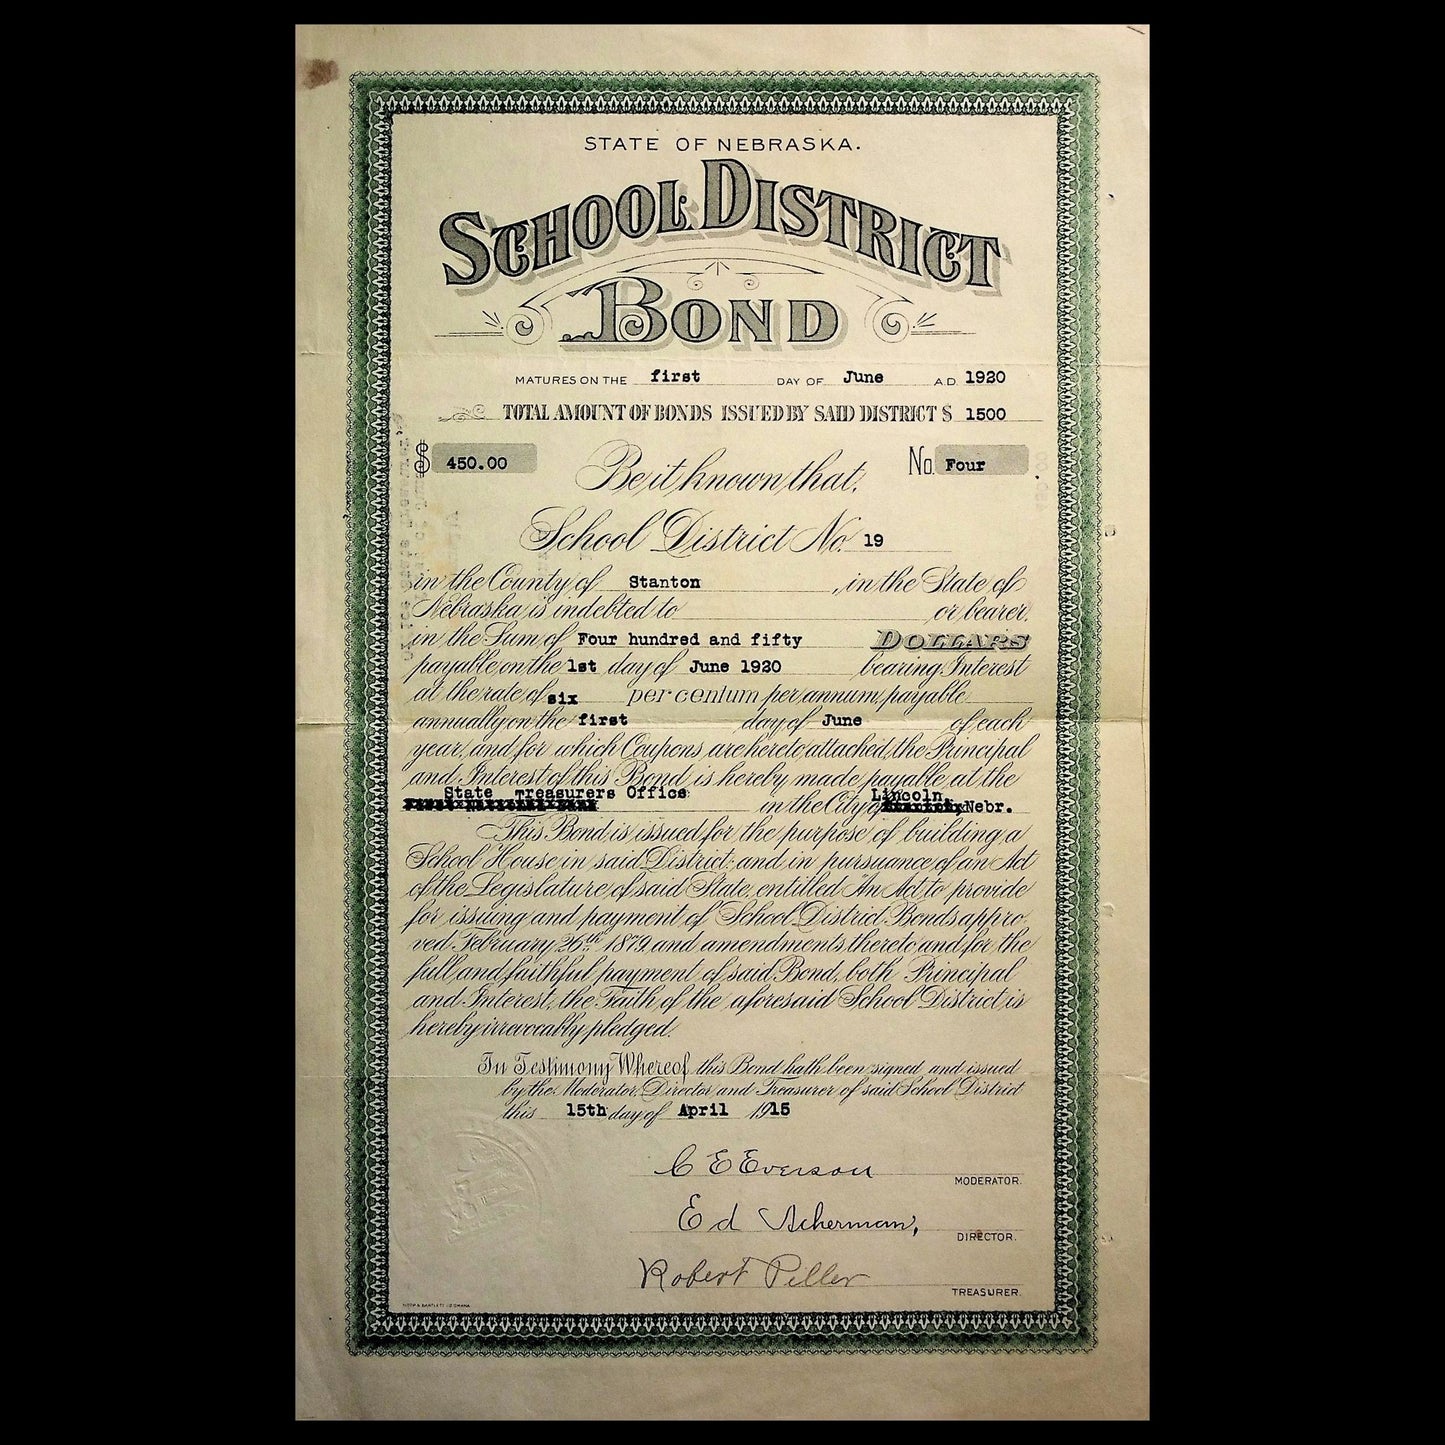 STATE OF NEBRASKA.
SCHOOL DISTRICT
BOND
MATURES ON THE first DAY OF June A.D. 1920
TOTAL AMOUNT OF BONDS ISSUED BY SAID DISTRICT $ 1500
$ 450.00 Be it known that, No. Four
School District No. 19
in the County of Stanton, in the State of
Nebraska is indebted to or bearer,
in the Sum of Four hundred and fifty DOLLARS
payable on the 1st day of June 1920 bearing Interest
at the rate of six per centum per annum, payable
annually on the first day of June of each
year, and for which Coupons are hereto attached, the Principal
and Interest of this Bond is hereby made payable at the
State Treasurers Office in the City of Lincoln, Nebr.
This Bond is issued for the purpose of building a
School House in said District; and in pursuance of an Act
of the Legislature of said State, entitled "An Act to provide
for issuing and payment of School District Bonds appro-
ved February 26th 1879, and amendments thereto and for the
full and faithful payment of said Bond, both Principal
and Interest, the Faith of the aforesaid School District is
hereby irrevocably pledged.
In Testimony Whereof, this Bond hath been signed and issued
by the Moderator, Director and Treasurer of said School District
this 15th day of April 1915
C E Everson
MODERATOR.
Ed Ackerman,
DIRECTOR.
Robert Piller
TREASURER.